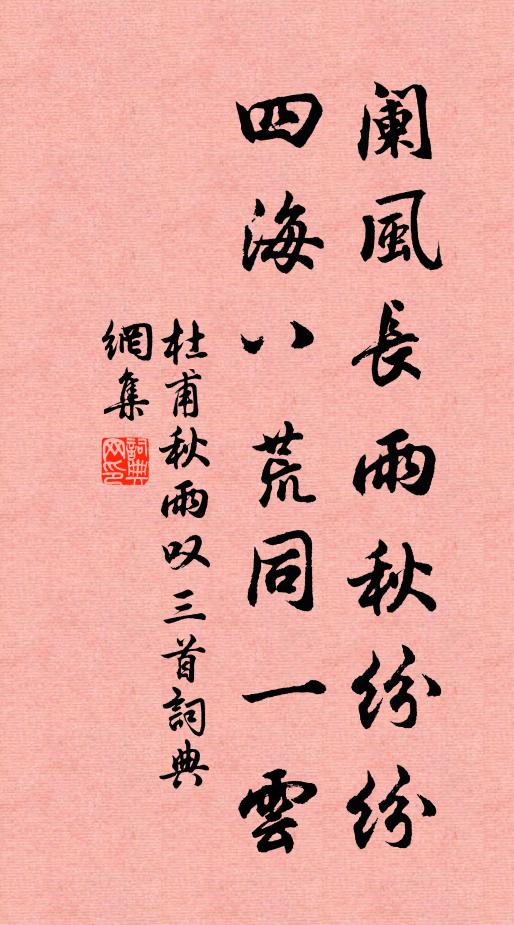 阑風長雨秋纷纷
四海八荒同一雲
杜甫秋雨叹三首詞典
網集
詞典网印